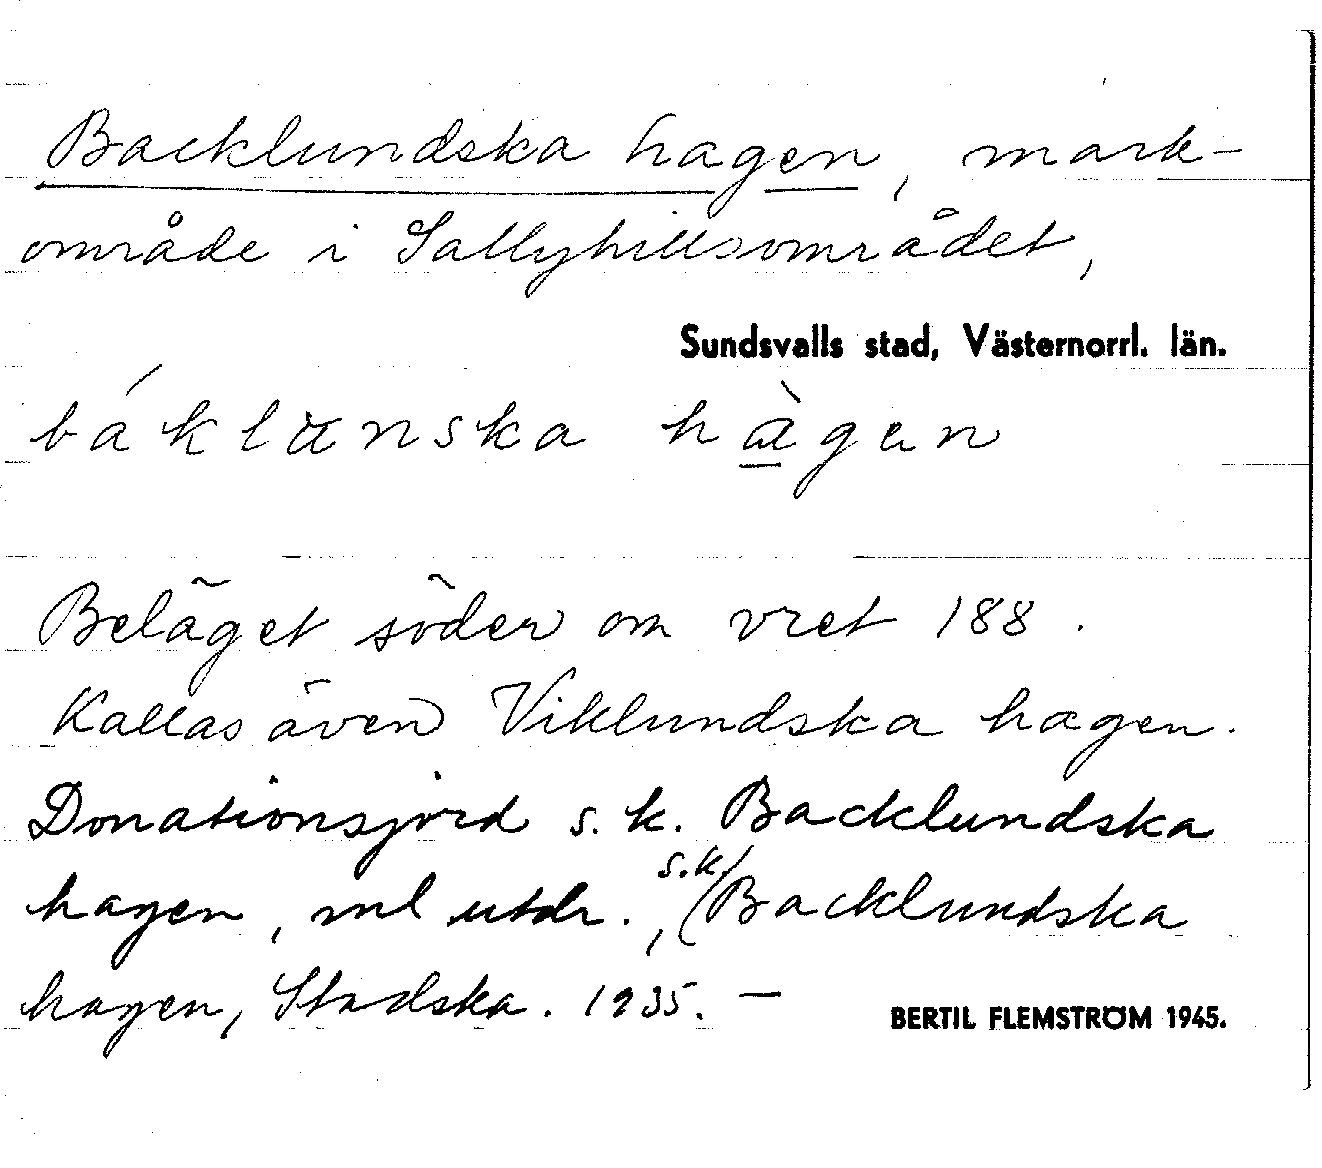 Backlundska hagen, mark-
område i Sallyhillsområdet,
Sundsvalls stad, Västernorrl. län.
báklanska hàgen
Beläget söder om vret 188.
Kallas även Viklundska hagen.
Donationsjord s.k. Backlundska
hagen, ml utdr., (s.k. Backlundska
hagen, Stadska. 1935. —
BERTIL FLEMSTRÖM 1945.